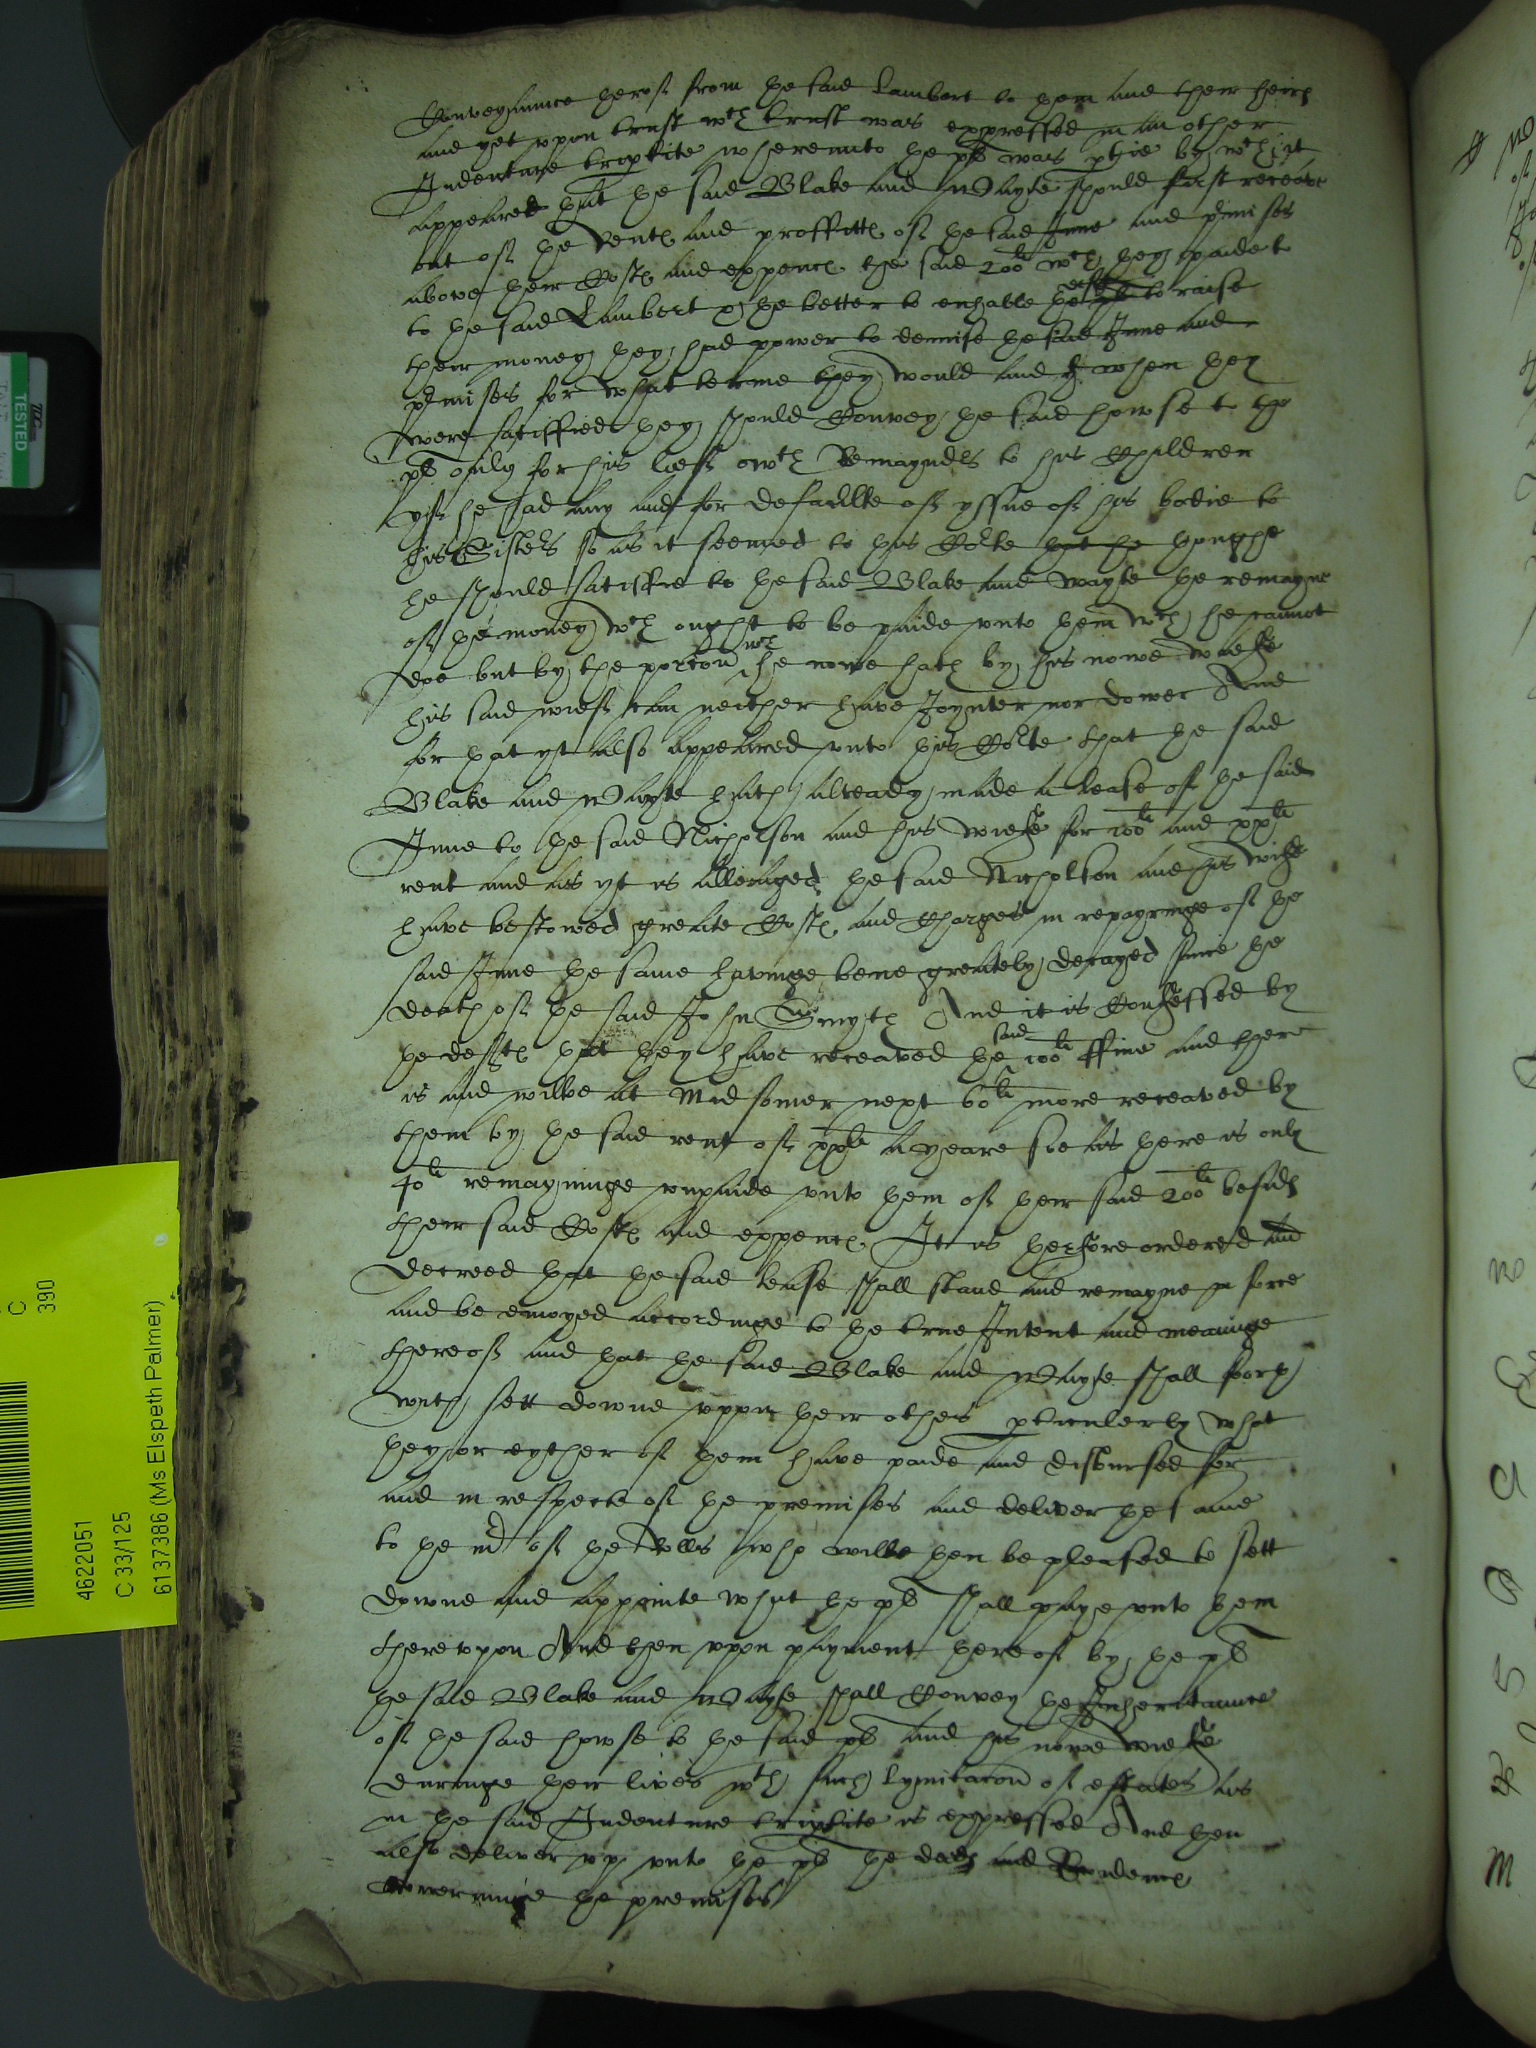 Conveyaunce therof from the said Lambert to them and their heires
and yet upon trust wch trust was expressed in an other
Indenture tripartite whereunto the pl was ptie by wch it
appeared that the said Blake and Wayte should first receave
out of the Rents and proffitts of the said Inne and pmises
above their Costs and expences the said 200li wch they paide to
to the said Lambert & the better to enhable the deftes pl to raise
their money they had power to demise the said Inne and
pmises for what terme they would and yt when they
were satisfied they should Convey the said howse to the
pl only for his lief wth Remaynders to his Children
yf he had any and for defaulte of yssue of his bodie to
his Sisters so as it seemed to this Corte that he thoughe
he should satisfie to the said Blake and Wayte the remayne
of the money wch ought to be paide unto them wch he cannot
doe but by the porcon wch he nowe hath by his nowe wiefe
his said wief can neither have Joynter nor dower And
for that yt also appeared unto this Corte that the said
Blake and Wayte hath already made a lease of the said
Inne to the said Nicholson and his wiefe for 100li and xxli
rent and as yt is alleaged the said Nicholson and his wiefe
have bestowed greate Costs and Charges in repayringe of the
said Inne the same havinge bene greately decayed since the
death of the said John Smyth And it is Confessed by
the defts that they have receaved the said 100li ffine and there
is and wilbe at Midsomer next 60li more receaved by
them by the said rent of xxli a yeare soe as there is only
40li remayninge unpaide unto them of their said 200li besids
their said Costs and expences It is therfore ordered and
decreed that the said lease shall stand and remayne in force
and be enioyed accordinge to the true Intent and meaninge
thereof and that the said Blake and Wayte shall forth
with sett downe uppon their othes pticulerly what
they or eyther of them have paide and disbursed for
and in respecte of the premises and deliver the same
to the Mr of the Rolls who wilbe then be pleased to sett
downe and appointe what the pl shall paye unto them
thereuppon And then upon payment thereof by the pl
the said Blake and Wayte shall Convey the Inheritaunce
of the said howse to the said pl and his nowe wiefe
duringe their lives wth such lymitacon of estates as
in the said Indenture tripartite is expressed And then
also deliver up unto the pl the deeds and Evidences
concerninge the premises
4622051
C 33/125
6137386 (Ms Elspeth Palmer)
C
390
TESTED